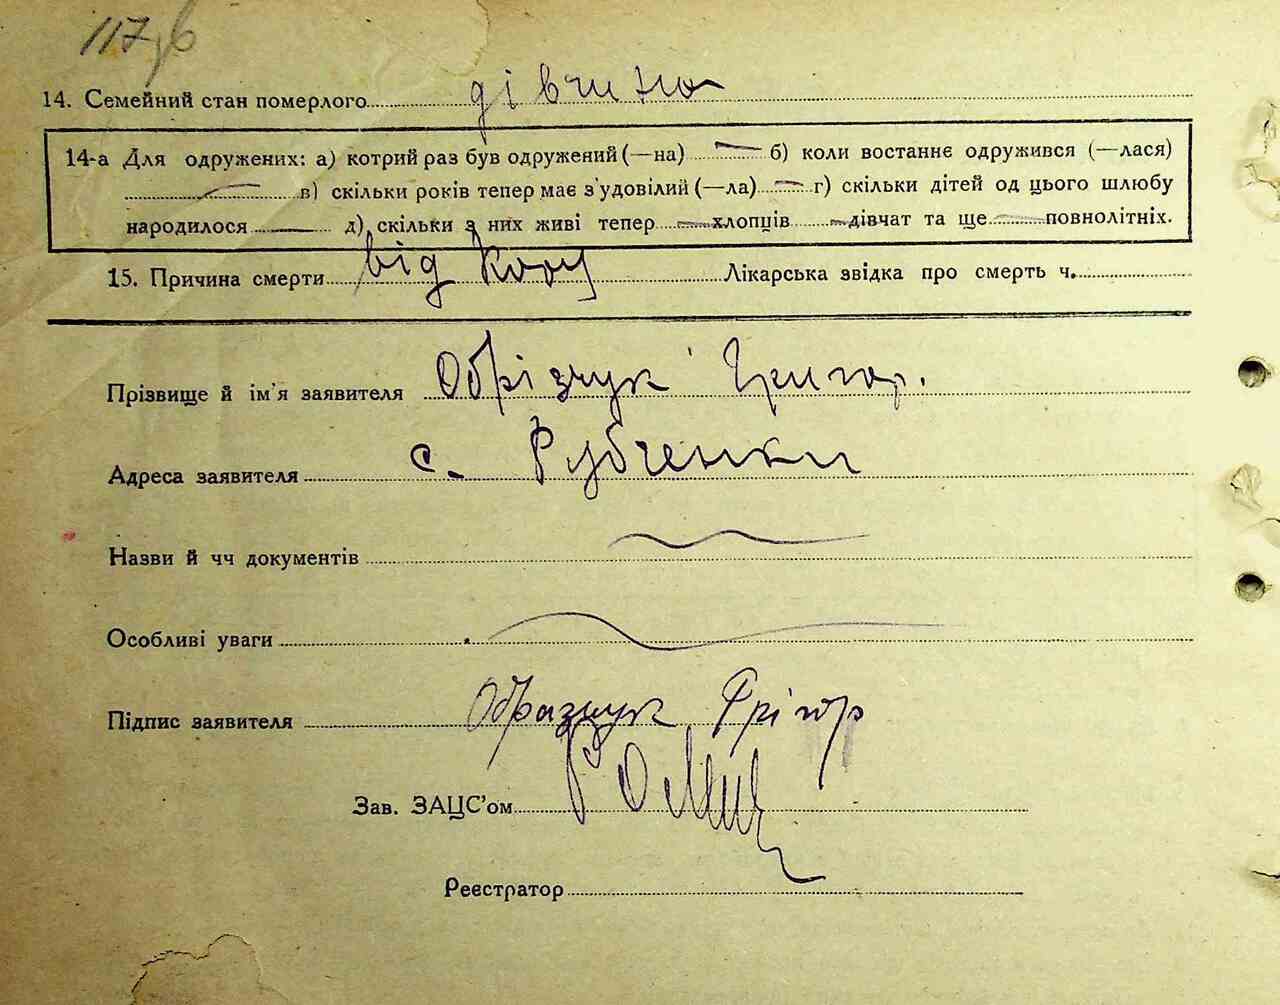 117 зв
14. Семейний стан померлого дівчина
14-а Для одружених: а) котрий раз був одружений (—на) — б) коли востаннє одружився (—лася)
— в) скільки років тепер має з'удовілий (—ла) — г) скільки дітей од цього шлюбу
народилося — д) скільки з них живі тепер — хлопців — дівчат та ще — повнолітніх.
15. Причина смерти від кору Лікарська звідка про смерть ч.
Прізвище й ім'я заявителя Обрізчук Григор.
Адреса заявителя с. Рубченки
Назви й чч документів
Особливі уваги
Підпис заявителя Образчук Грігор
Зав. ЗАЦС'ом
Реєстратор